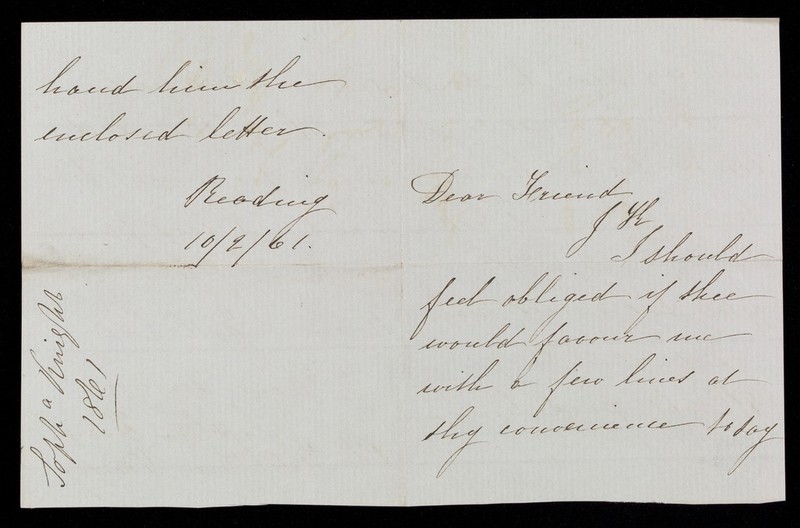 hand him the
enclosed letter.
Reading
10/2/61.
Soph a Knight
1861
Dear Friend
J
I should
feel obliged if thee
would favour me
with a few lines at
thy convenience today